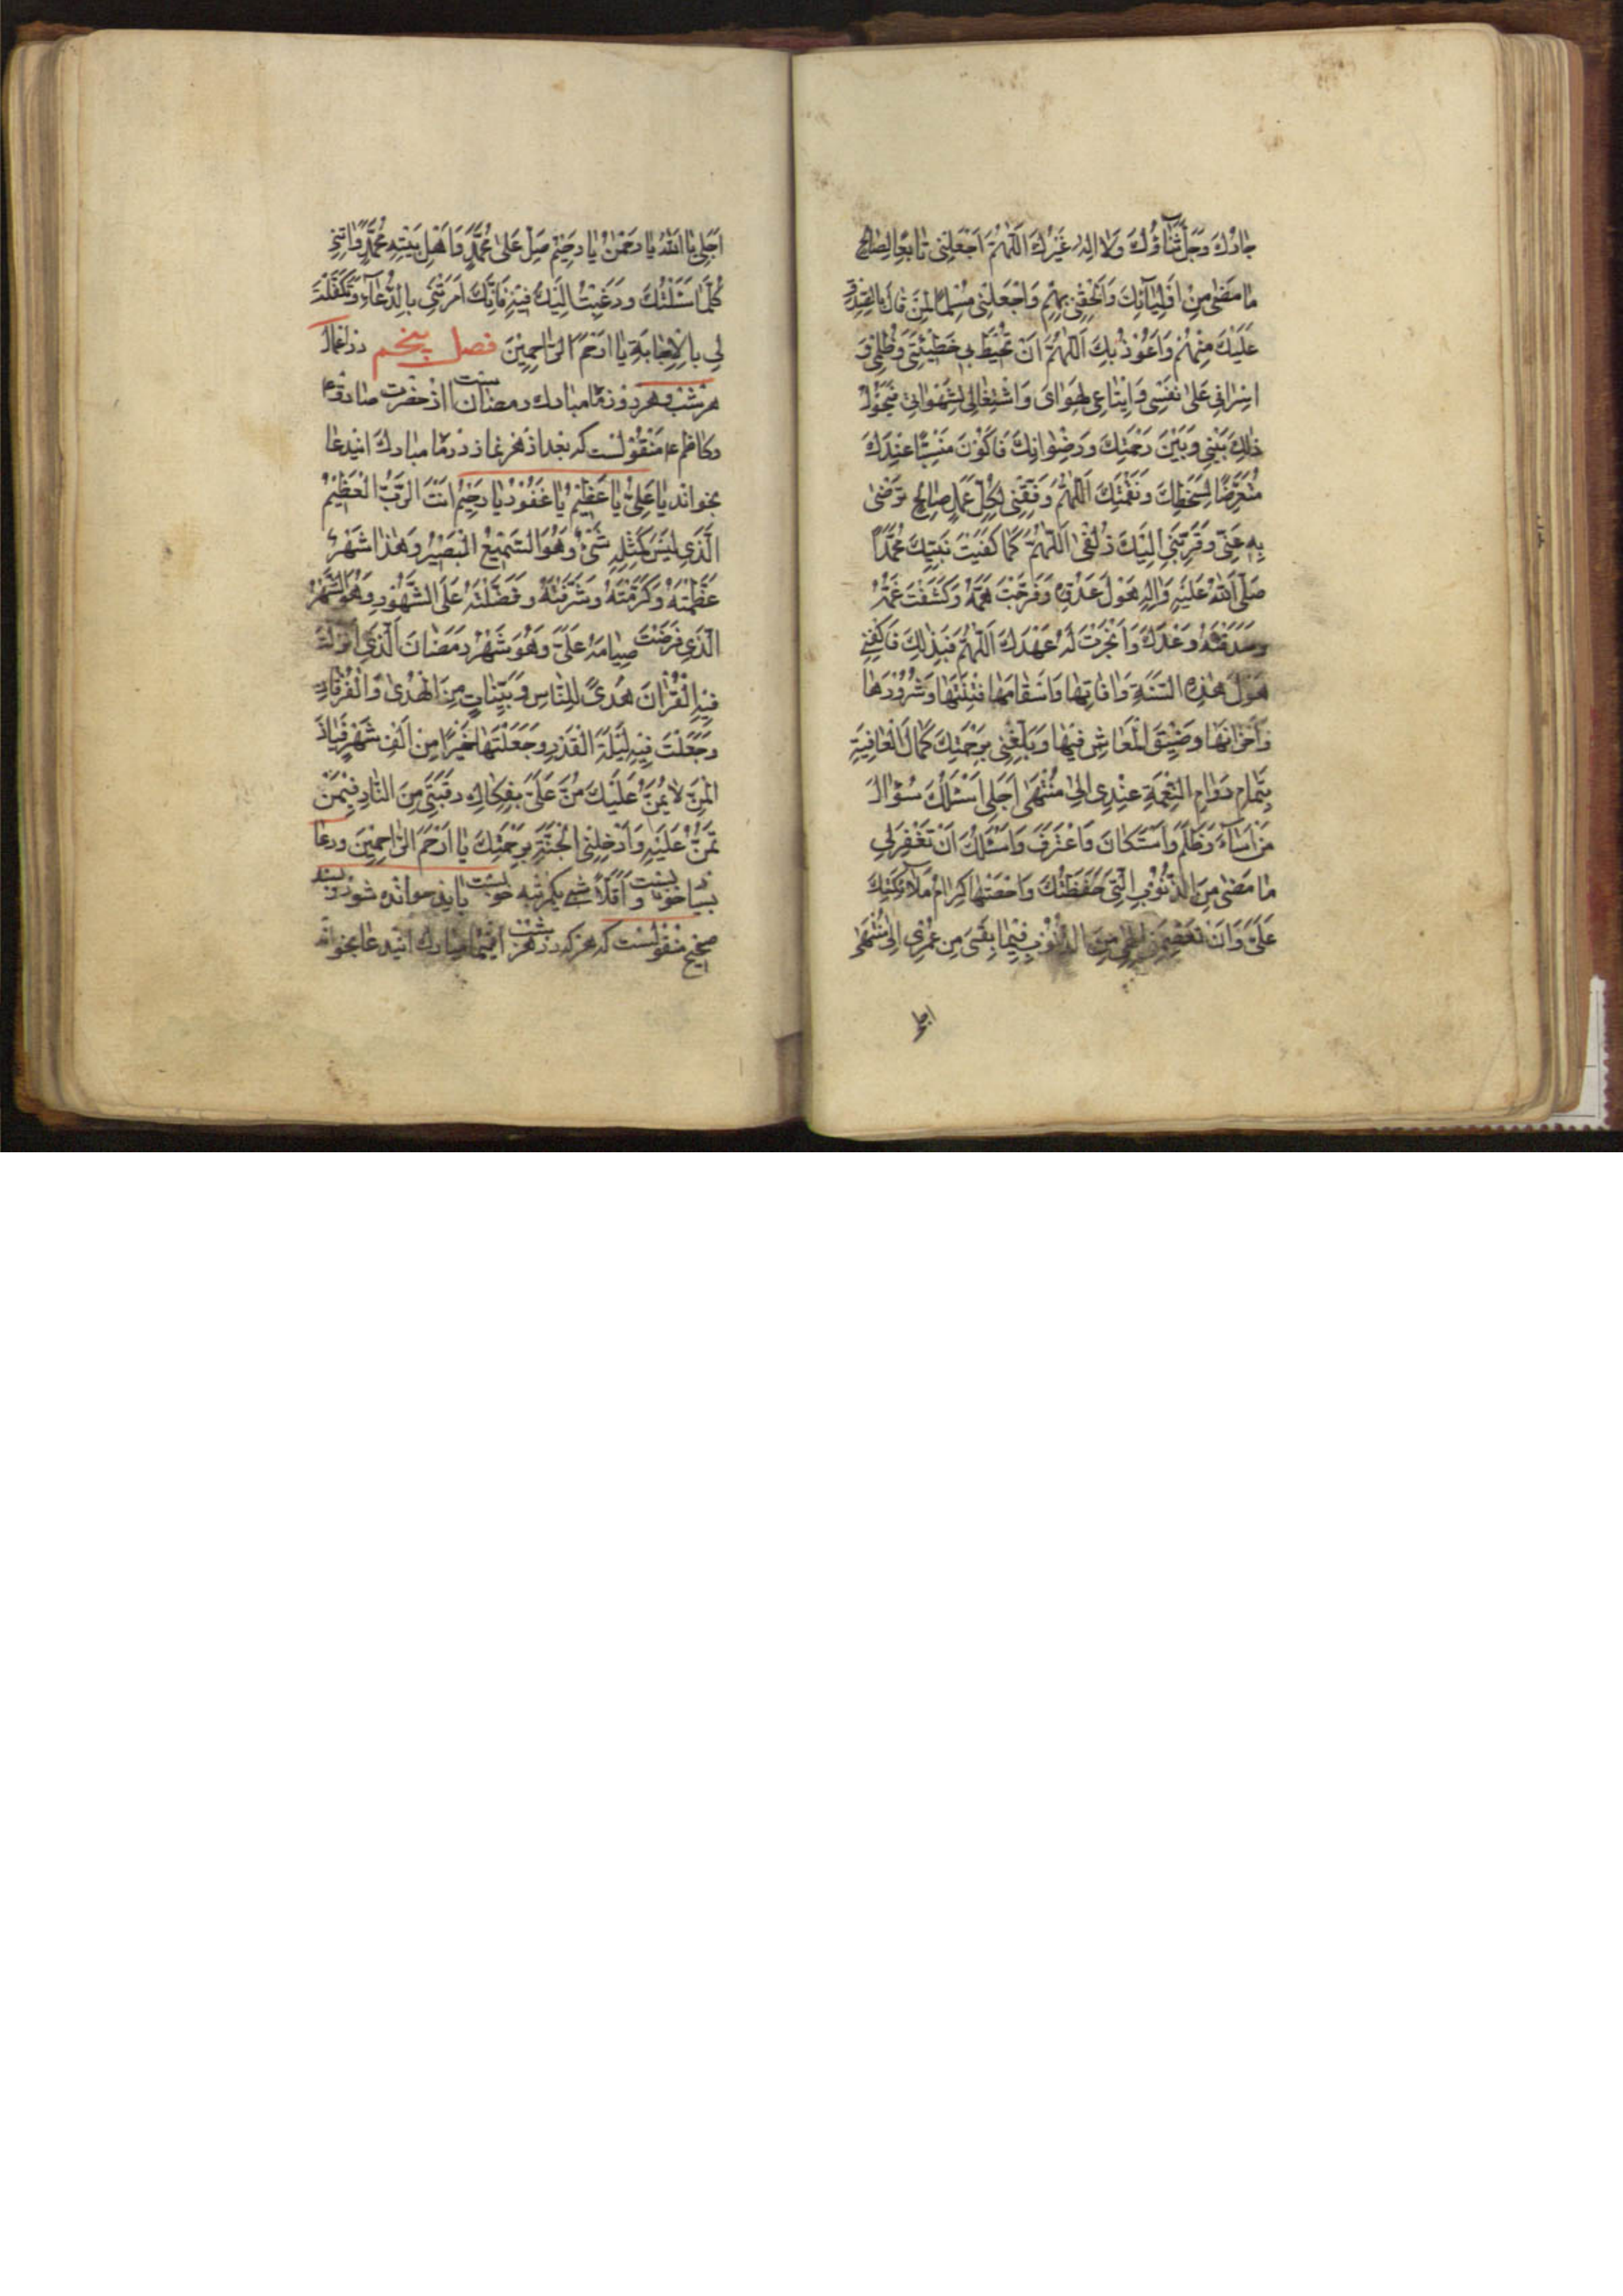 جارُكَ وَجَلَّ ثَنآؤُكَ وَلا اِلهَ غَيْرُكَ اَللّهُمَّ اجْعَلْنِى تابِعًا لِصالِحِ
ما مَضى مِنْ اَوْلِيآئِكَ وَاَلْحِقْنِى بِهِمْ وَاجْعَلْنِى مُسْلِمًا لِمَنْ قالَ بِالصِّدْقِ
عَلَيْكَ مِنْهُمْ وَاَعُوذُ بِكَ اَللّهُمَّ اَنْ تُحِيطَ بِى خَطِيئَتِى وَظُلْمِى وَ
اِسْرافِى عَلى نَفْسِى وَاتِّباعِى لِهَواىَ وَاشْتِغالِى بِشَهَواتِى فَيَحُولُ
ذلِكَ بَيْنِى وَبَيْنَ رَحْمَتِكَ وَرِضْوانِكَ فَاَكُونَ مَنْسِيًّا عِنْدَكَ
مُتَعَرِّضًا لِسَخَطِكَ وَنَقِمَتِكَ اَللّهُمَّ وَفِّقْنِى لِكُلِّ عَمَلٍ صالِحٍ تَرْضى
بِهِ عَنِّى وَقَرِّبْنِى اِلَيْكَ زُلْفى اَللّهُمَّ كَما كَفَيْتَ نَبِيَّكَ مُحَمَّدًا
صَلَّى اللهُ عَلَيْهِ وَالِهِ هَوْلَ عَدُوِّهِ وَفَرَّجْتَ هَمَّهُ وَكَشَفْتَ غَمَّهُ
وَصَدَقْتَهُ وَعْدَكَ وَاَنْجَزْتَ لَهُ عَهْدَكَ اَللّهُمَّ فَبِذلِكَ فَاكْفِنِى
هَوْلَ هذِهِ السَّنَةِ وَافاتِها وَاَسْقامِها فِتْنَتِها وَشُرُورِها
وَاَحْزانِها وَضِيقَ الْمَعاشِ فِيها وَبَلِّغْنِى بِرَحْمَتِكَ كَمالَ الْعافِيَةِ
بِتَمامِ دَوامِ النِّعْمَةِ عِنْدِى اِلى مُنْتَهى اَجَلِى اَسْئَلُكَ سُؤالَ
مَنْ اَسآءَ وَظَلَمَ وَاسْتَكانَ وَاعْتَرَفَ وَاَسْئَلُكَ اَنْ تَغْفِرَ لِى
ما مَضى مِنَ الذُّنُوبِ الَّتِى حَفَظَتُكَ وَاَحْصَتْها كِرامُ مَلآئِكَتِكَ
عَلَىَّ وَاَنْ تَعْصِمَنِى اِلهِى مِنَ الذُّنُوبِ فِيما بَقِىَ مِنْ عُمْرِى اِلى مُنْتَهى
اجلى
اَجَلِى يا اَللهُ يا رَحْمنُ يا رَحِيمُ صَلِّ عَلى مُحَمَّدٍ وَاَهْلِ بَيْتِهِ مُحَمَّدٍ وَاتِنِى
كُلَّما سَئَلْتُكَ وَرَغِبْتُ اِلَيْكَ فِيهِ فَاِنَّكَ اَمَرْتَنِى بِالدُّعآءِ وَتَكَفَّلْتَ
لِى بِالْاِجابَةِ يا اَرْحَمَ الرّاحِمِينَ فصل پنجم در اعمال
هر شب و هر روز ماه مبارك رمضان است از حضرت صادق ع
وكاظم ع منقولست كه بعد از هر نماز در ماه مبارك اين دعا
بخواند يا عَلِىُّ يا عَظِيمُ يا غَفُورُ يا رَحِيمُ اَنْتَ الرَّبُّ الْعَظِيمُ
الَّذِى لَيْسَ كَمِثْلِهِ شَىْءٌ وَهُوَ السَّمِيعُ الْبَصِيرُ وَهذا شَهْرٌ
عَظَّمْتَهُ وَكَرَّمْتَهُ وَشَرَّفْتَهُ وَفَضَّلْتَهُ عَلَى الشُّهُورِ وَهُوَ الشَّهْرُ
الَّذِى فَرَضْتَ صِيامَهُ عَلَىَّ وَهُوَ شَهْرُ رَمَضانَ الَّذِى اَنْزَلْتَ
فِيهِ الْقُرْانَ هُدًى لِلنّاسِ وَبَيِّناتٍ مِنَ الْهُدى وَالْفُرْقانِ
وَجَعَلْتَ فِيهِ لَيْلَةَ الْقَدْرِ وَجَعَلْتَها خَيْرًا مِنْ اَلْفِ شَهْرٍ فَياذَ
الْمَنِّ لا يُمَنُّ عَلَيْكَ مُنَّ عَلَىَّ بِفِكاكِ رَقَبَتِى مِنَ النّارِ فِيمَنْ
تَمُنُّ عَلَيْهِ وَاَدْخِلْنِى الْجَنَّةَ بِرَحْمَتِكَ يا اَرْحَمَ الرّاحِمِينَ ودعا
بسيار خوبست و اقلا شبى يكمرتبه خوبست بايد خوانده شود و بسند
صحيح منقولست كه هر كه در هر شب اينماه مبارك اين دعا بخواند